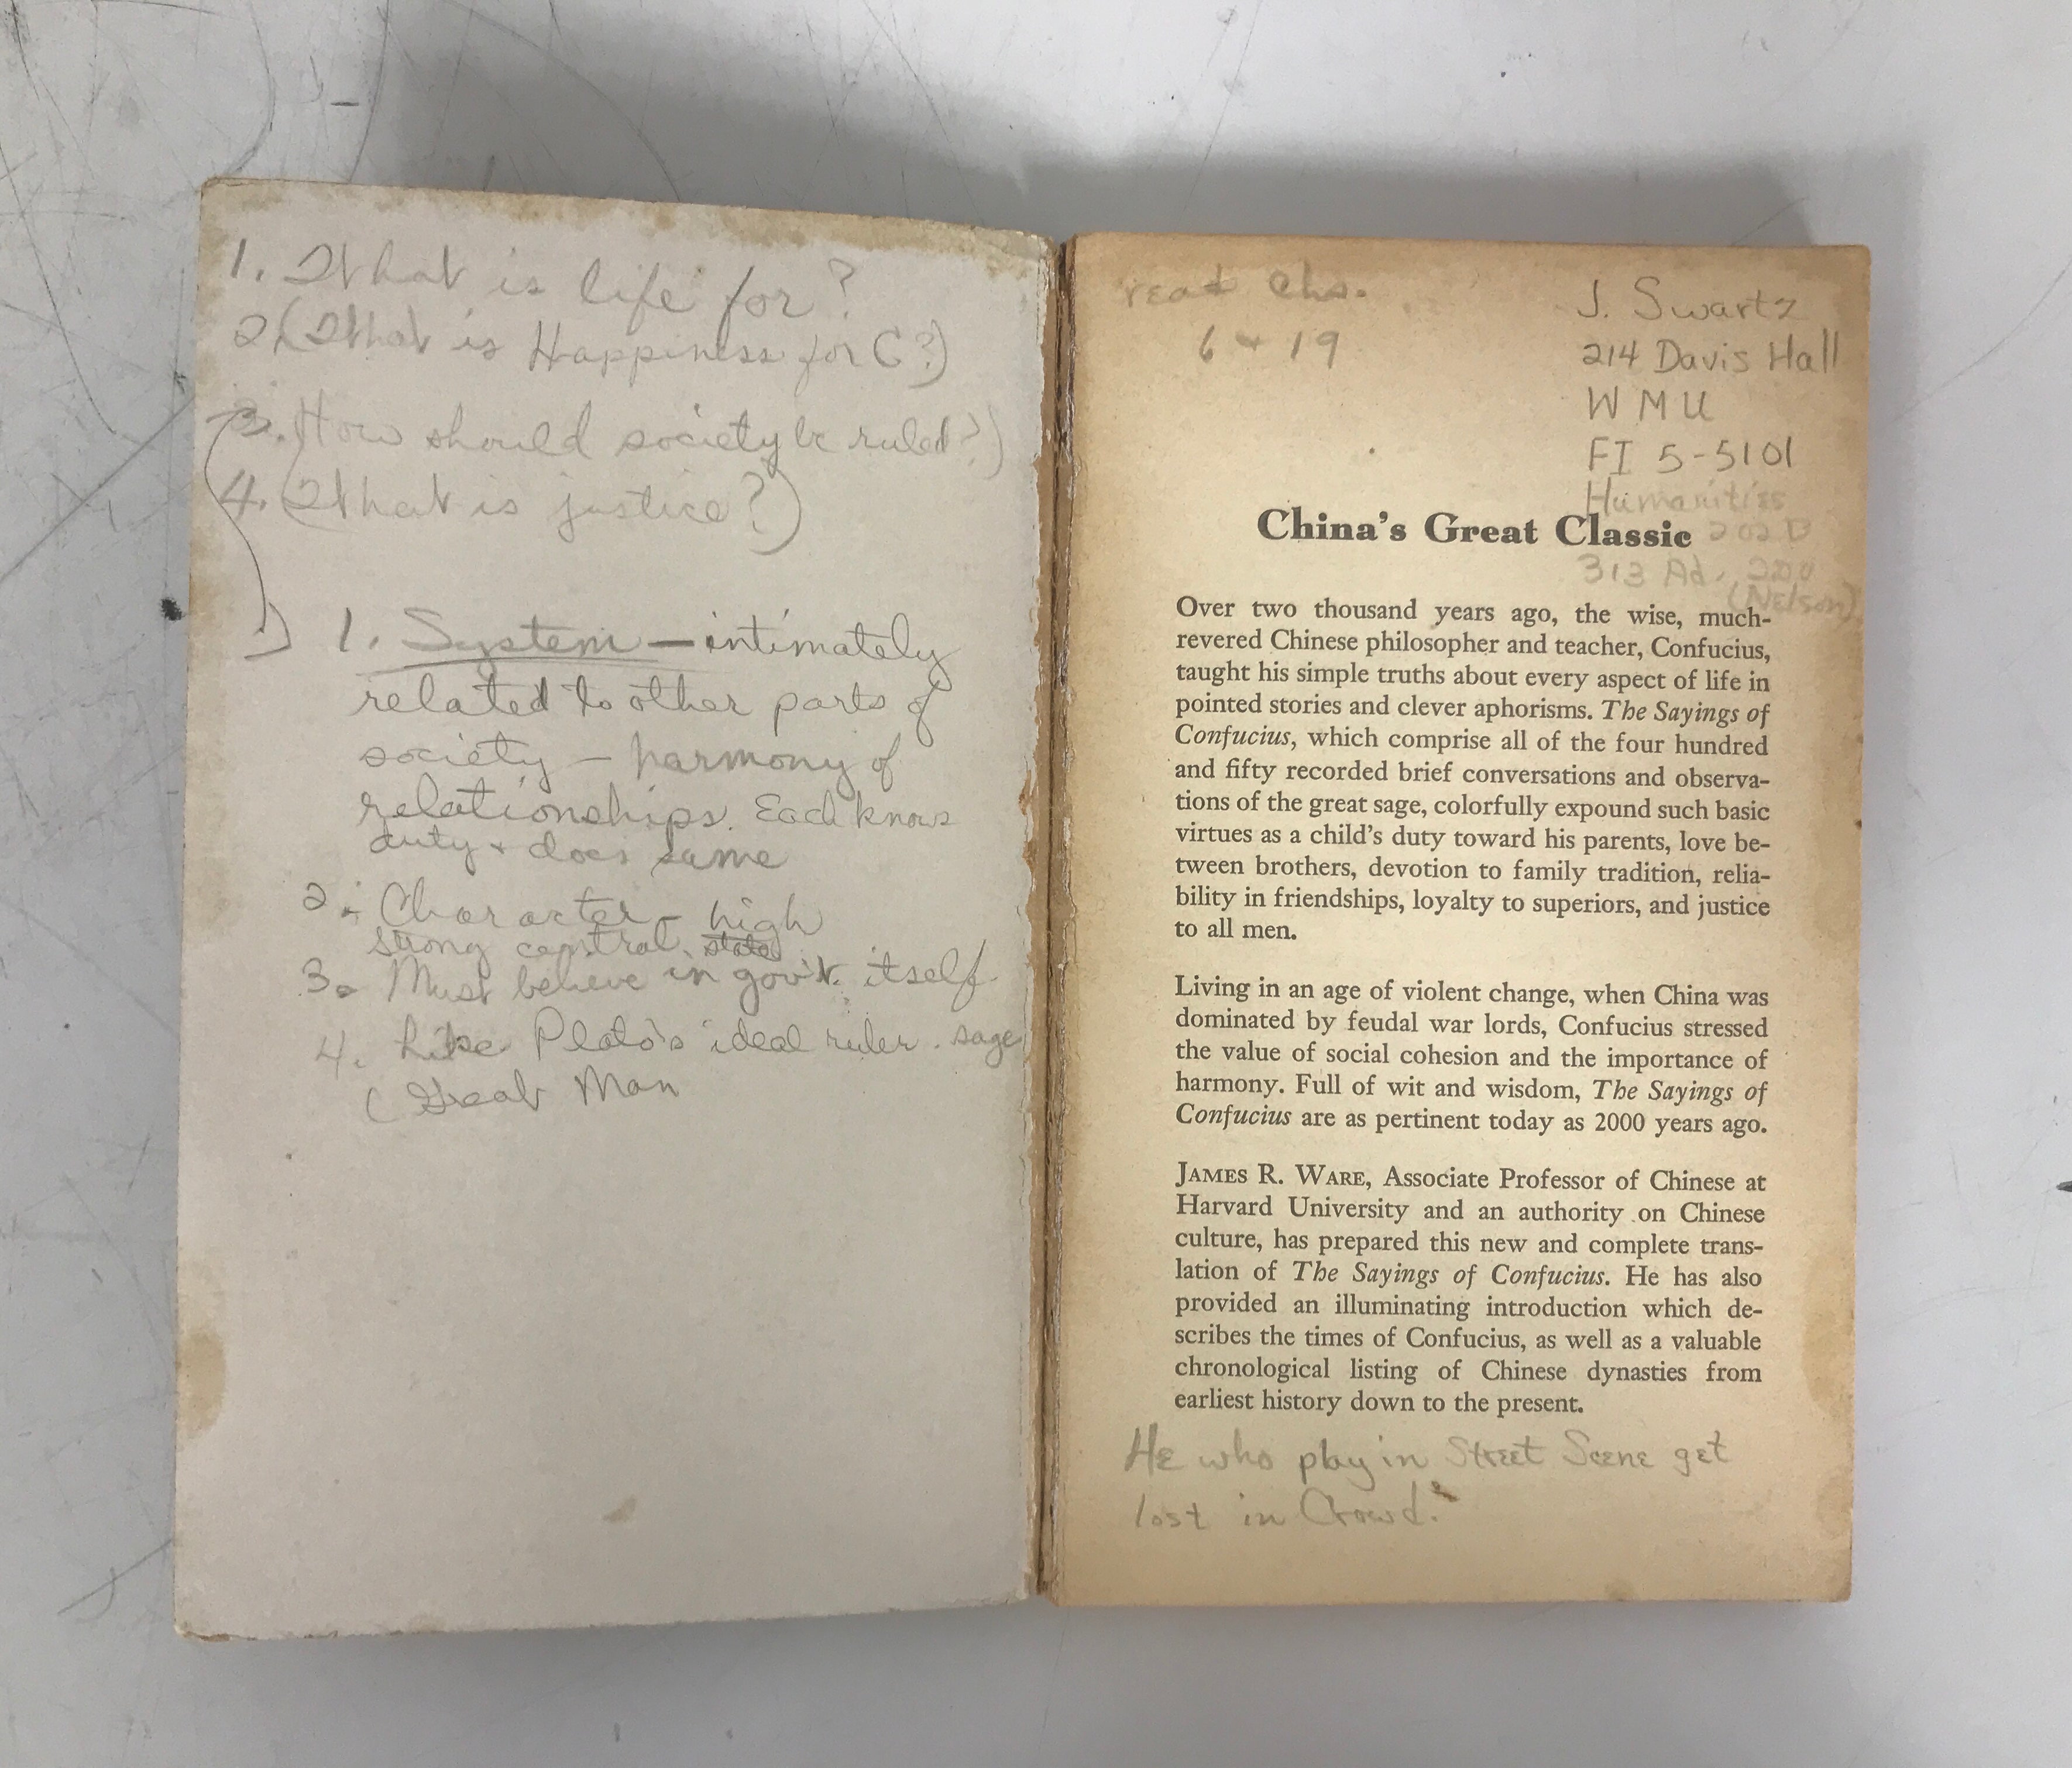 1. What is life for?
2. (What is Happiness for C?)
3. How should society be ruled?)
4. (What is justice?)
1. System — intimately
related to other parts of
society — harmony of
relationships. Each knows
duty + does same
2. Character - high
strong central state
3. Must believe in gov't. itself
4. Like Plato's ideal ruler. sage
(Great Man
read chs.
6 + 19
J. Swartz
214 Davis Hall
WMU
FI 5-5101
Humanities
202 B
313 Ad.
(Nelson)
China's Great Classic
Over two thousand years ago, the wise, much-
revered Chinese philosopher and teacher, Confucius,
taught his simple truths about every aspect of life in
pointed stories and clever aphorisms. The Sayings of
Confucius, which comprise all of the four hundred
and fifty recorded brief conversations and observa-
tions of the great sage, colorfully expound such basic
virtues as a child's duty toward his parents, love be-
tween brothers, devotion to family tradition, relia-
bility in friendships, loyalty to superiors, and justice
to all men.
Living in an age of violent change, when China was
dominated by feudal war lords, Confucius stressed
the value of social cohesion and the importance of
harmony. Full of wit and wisdom, The Sayings of
Confucius are as pertinent today as 2000 years ago.
JAMES R. WARE, Associate Professor of Chinese at
Harvard University and an authority on Chinese
culture, has prepared this new and complete trans-
lation of The Sayings of Confucius. He has also
provided an illuminating introduction which de-
scribes the times of Confucius, as well as a valuable
chronological listing of Chinese dynasties from
earliest history down to the present.
He who play in Street Scene get
lost in Crowd.